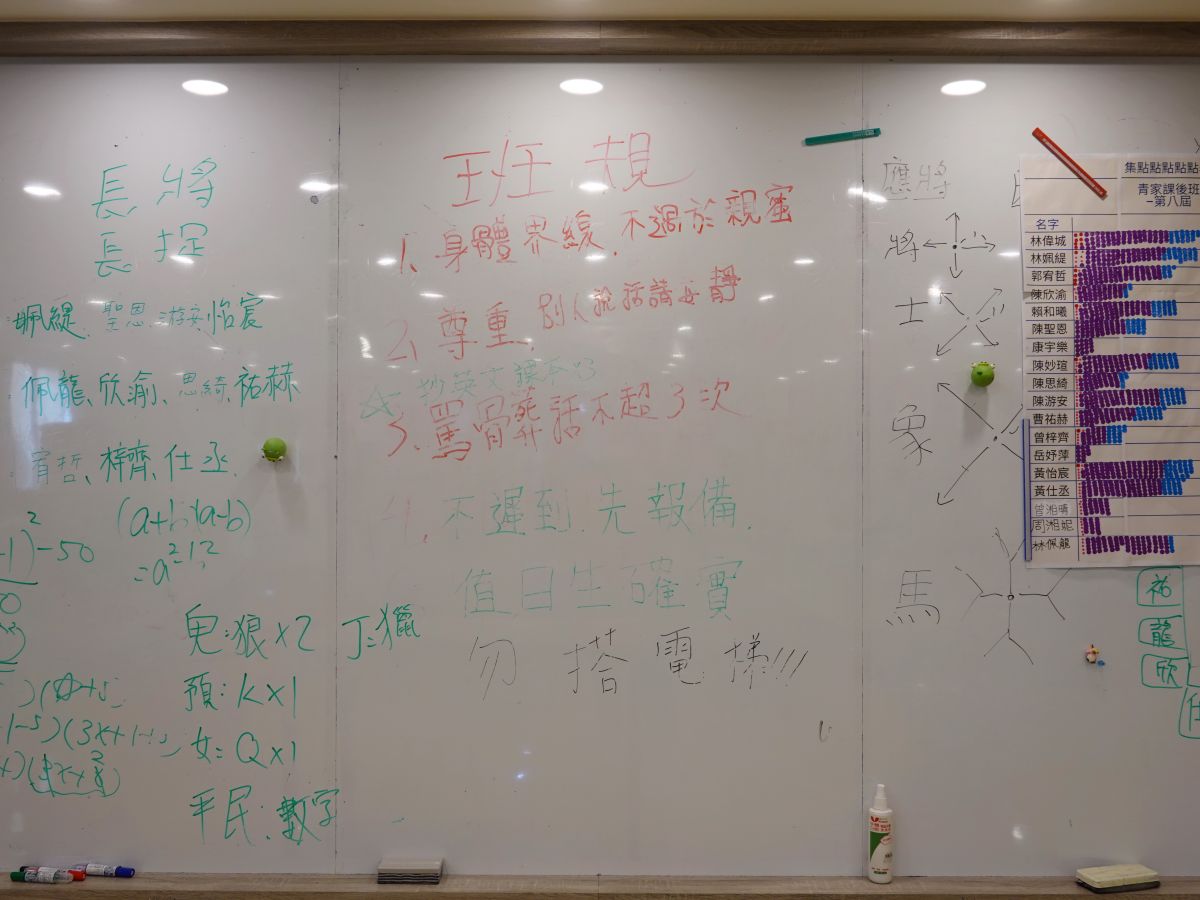 長將
長捉
珮緹、聖恩、游安、怡宸
佩龍、欣渝、思綺、祐赫
宥哲、梓齊、仕丞
(a+b)(a-b)
-50
鬼:狼×2 J:獵
預:K×1
女:Q×1
平民:數字
班規
1、身體界線,不過於親蜜
2、尊重,別人說話請安靜
☆抄英文課本
3、罵骨葬話不超3次
4、不遲到,先報備,
值日生確實
勿搭電梯!!!
應將
將
士
象
馬
集點點點點點
青家課後班
-第八屆
名字
林偉城
林姵緹
郭宥哲
陳欣渝
賴和曦
陳聖恩
康宇樂
陳妙瑄
陳思綺
陳游安
曹祐赫
曾梓齊
岳妤萍
黃怡宸
黃仕丞
曾湘晴
周湘妮
林佩龍
祐
龍
欣